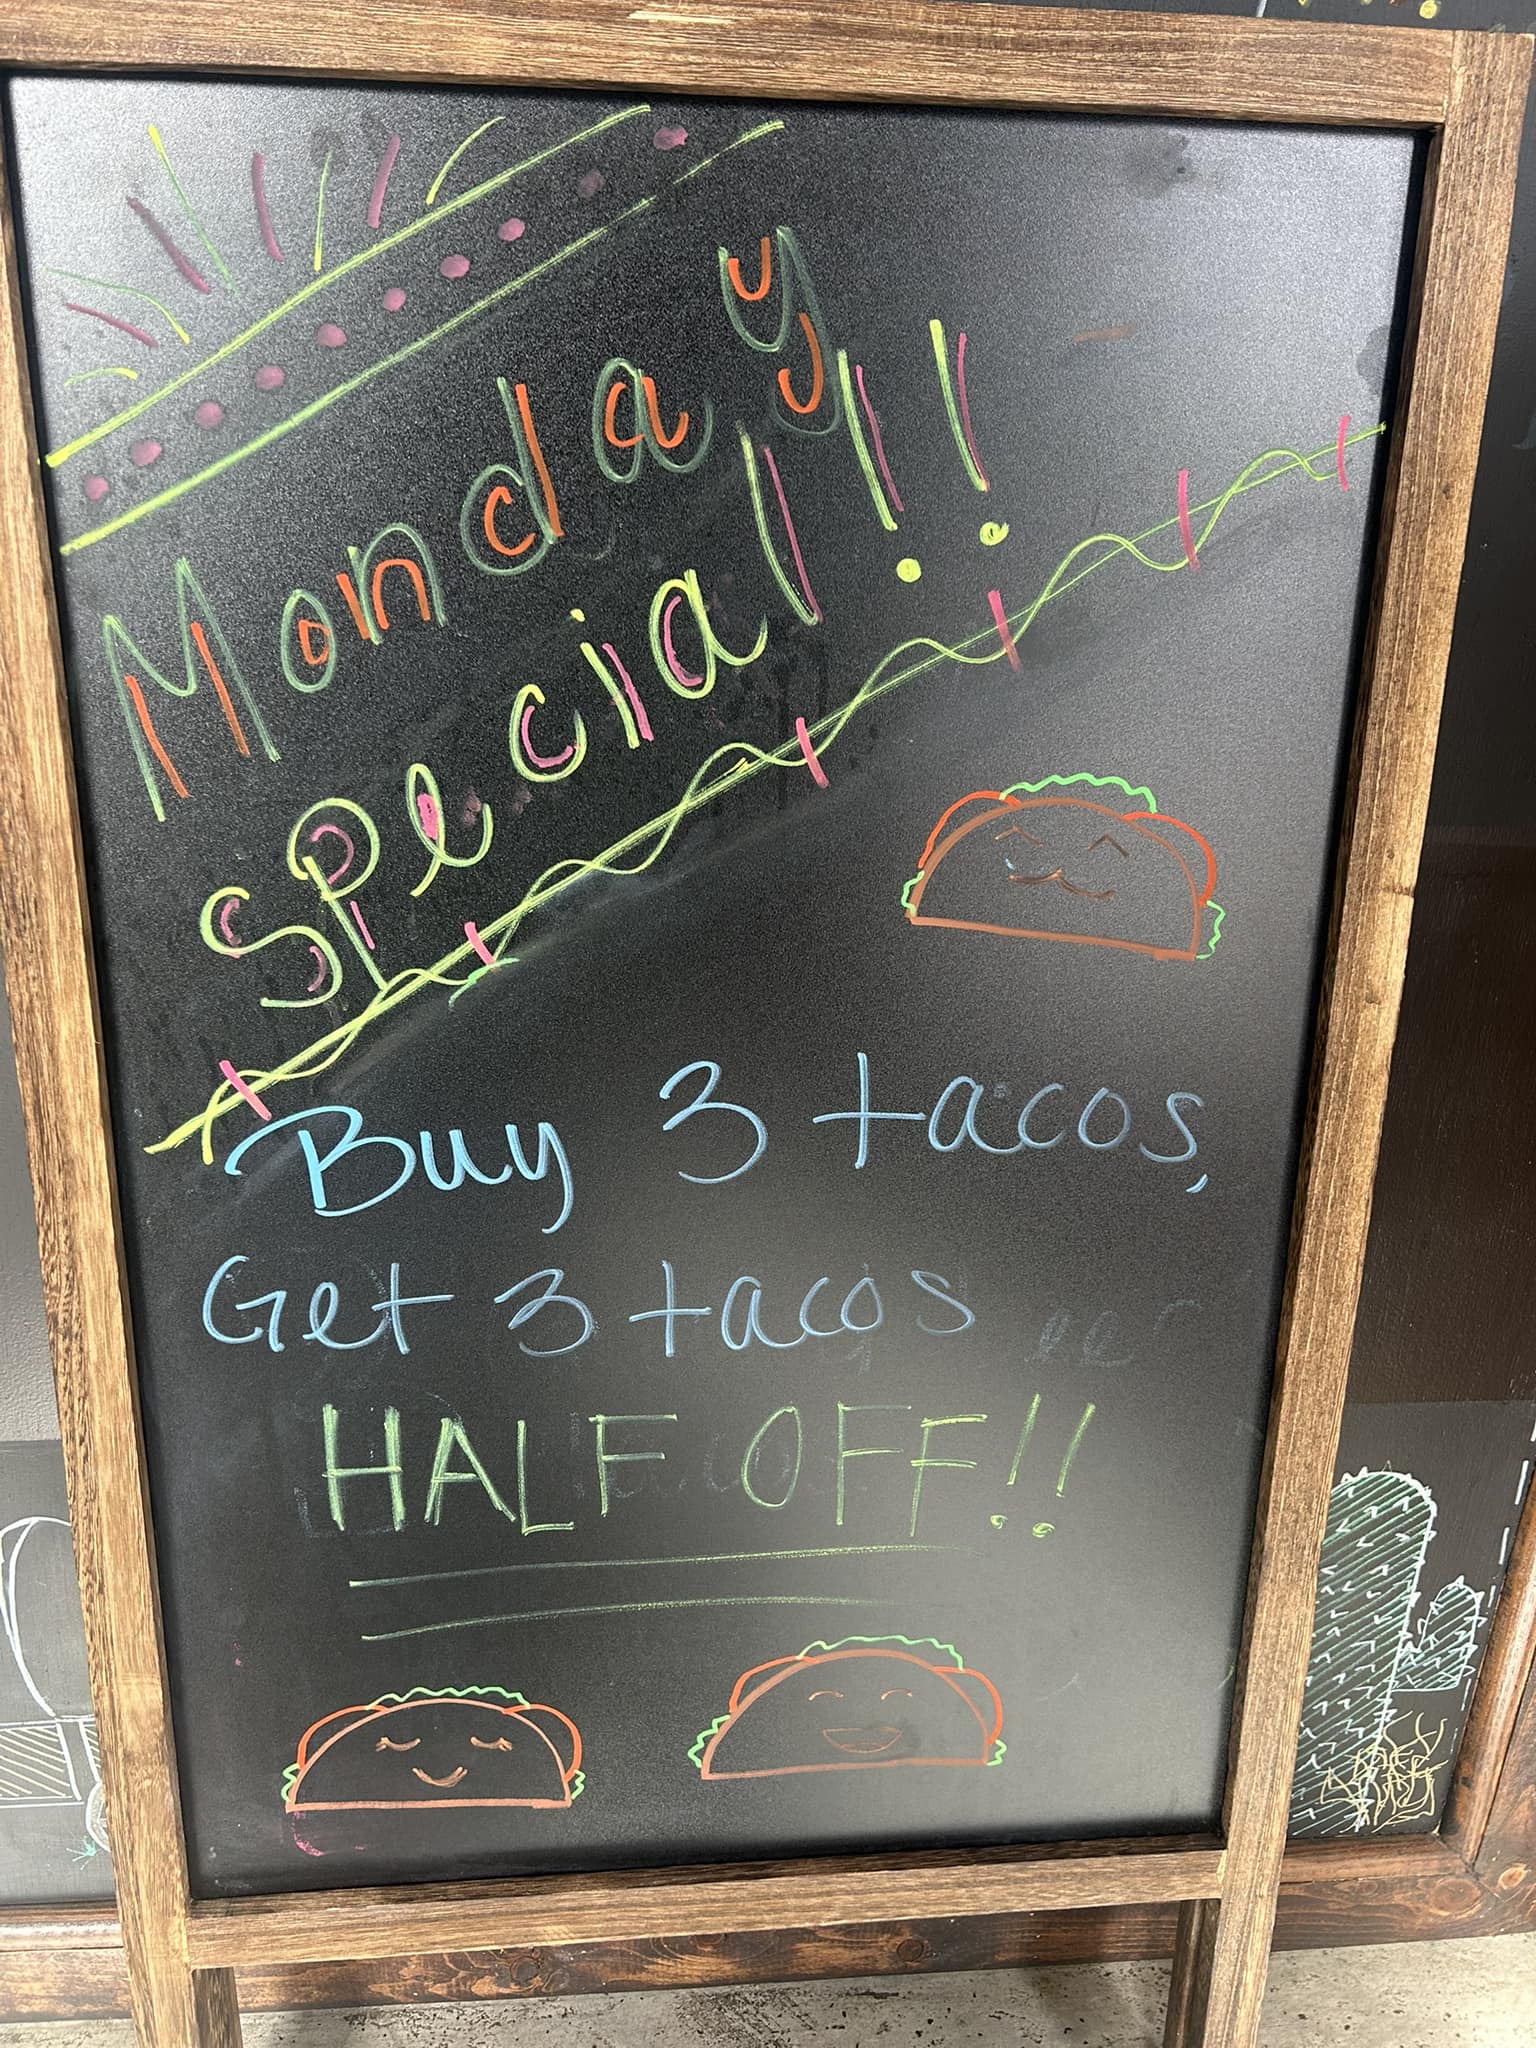 Monday
Special!!
Buy 3 tacos,
Get 3 tacos
HALF OFF!!